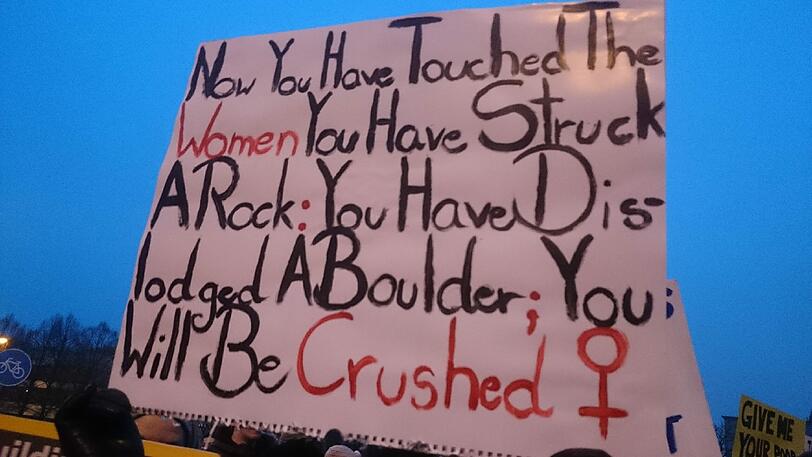 Now You Have Touched The
Women You Have Struck
A Rock: You Have Dis-
lodged A Boulder; You
Will Be Crushed ♀
GIVE ME
YOUR POOR